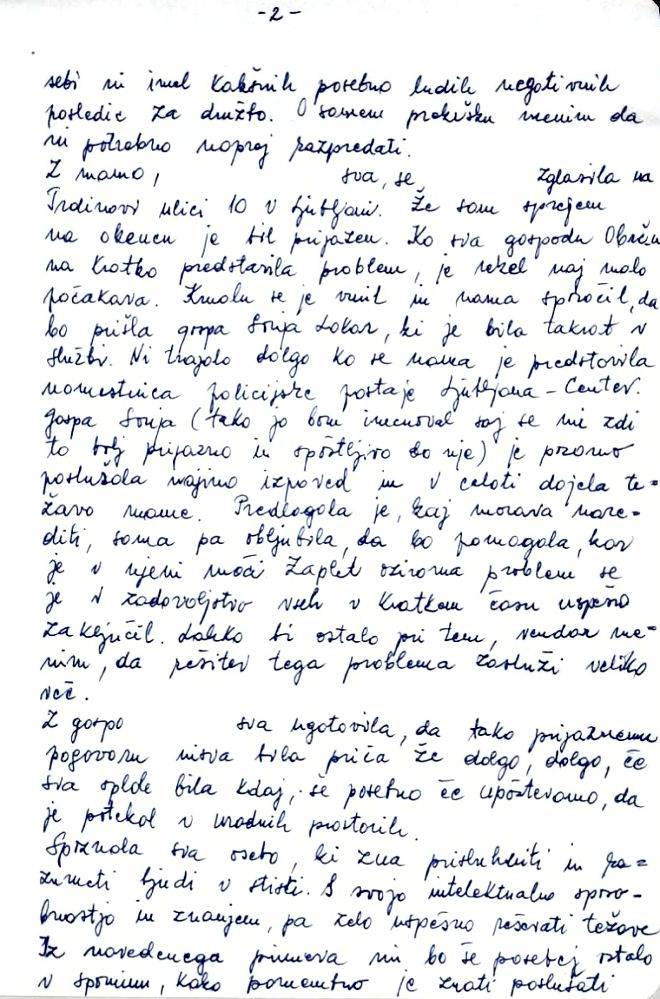 -2-
sebi ni imel kakšnih posebno hudih negativnih
posledic za družbo. O samem prekršku menim da
ni potrebno naprej razpredati.
Z mamo, sva, se zglasila na
Trdinovi ulici 10 v Ljubljani. Že sam sprejem
na okencu je bil prijazen. Ko sva gospodu
na kratko predstavila problem, je rekel naj malo
počakava. Kmalu se je vrnil in nama sporočil, da
bo prišla gospa Sonja Lokar, ki je bila takrat v
službi. Ni trajalo dolgo ko se nama je predstavila
namestnica policijske postaje Ljubljana-Center.
Gospa Sonja (tako jo bom imenoval saj se mi zdi
to bolj prijazno in spoštljivo do nje) je pozorno
poslušala najino izpoved in v celoti dojela te=
žavo mame. Predlagala je, kaj morava nare=
diti, sama pa obljubila, da bo pomagala, kar
je v njeni moči. Zaplet oziroma problem se
je v zadovoljstvo vseh v kratkem času uspešno
zaključil. Lahko bi ostalo pri tem, vendar me=
nim, da rešitev tega problema zasluži veliko
več.
Z gospo sva ugotovila, da tako prijaznemu
pogovoru nisva bila priča že dolgo, dolgo, če
sva sploh bila kdaj, še posebno če upoštevamo, da
je potekal v uradnih prostorih.
Spoznala sva osebo, ki zna prisluhniti in ra=
zumeti ljudi v stiski. S svojo intelektualno sposo-
bnostjo in znanjem, pa zelo uspešno reševati težave
Iz navedenega primera mi bo še posebej ostalo
v spominu, kako pomembno je znati poslušati